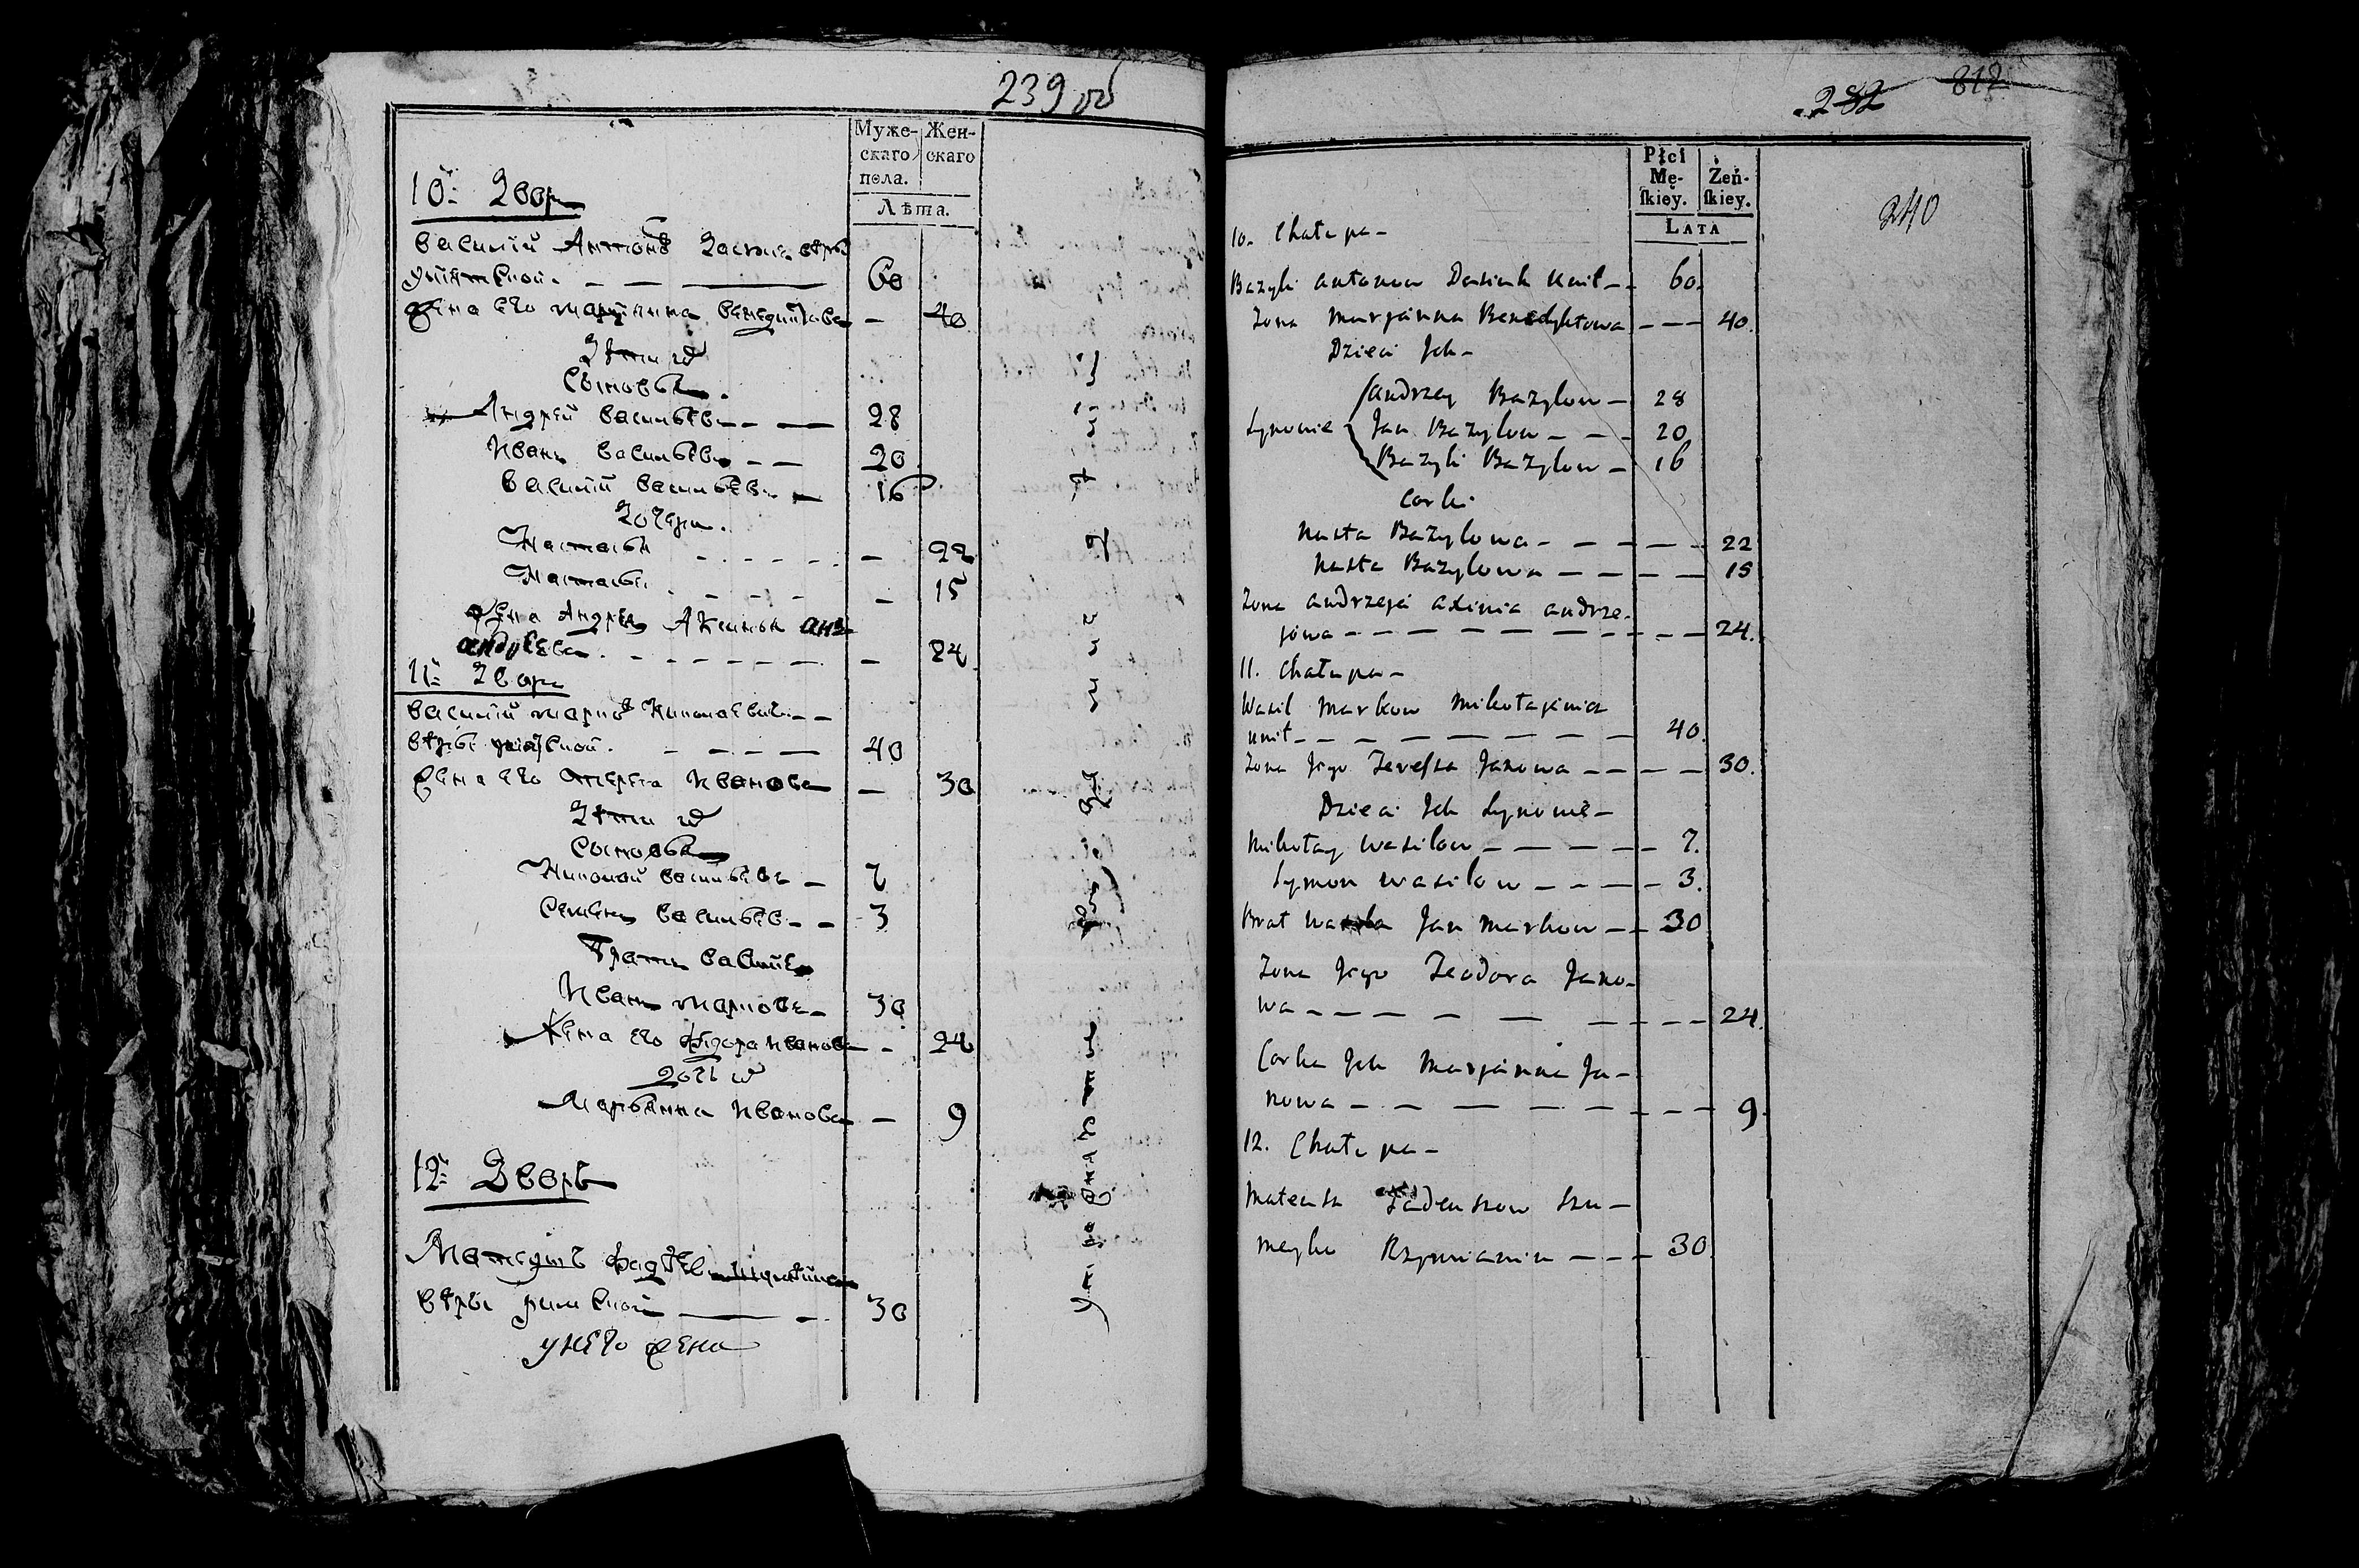 239 об
Муже- Жен-
скаго скаго
пола.
Лѣта.
10й Дворъ
Василій Антоновъ вѣры
уніятской. — — — 60
Жена его Маріянна Бенедиктова — 40
Дѣти их
Сыновья.
Андрей Васильевъ — — 28
Иванъ Васильевъ — — 20
Василій Васильевъ — 16
Дочери.
Настасья — 22
Настасья. — 15
Жена Андрея Аксинья
андреева. — 24
11й Дворъ
Василій Марковъ Николаевичъ — —
вѣры уніятской. — — — 40
Жена его Тереса Иванова — 30
Дѣти их
Сыновья
Николай Васильевъ — 7
Семенъ Васильевъ — — 3
Братъ Василія
Иванъ Марковъ — 30
Жена его Федора Иванова — 24
Дочь их
Марьянна Иванова — 9
12й Дворъ
Матеушъ Фадѣевъ
вѣры римской — — 30
у него жена
282 812
240
Płci
Mę- Żeń-
ſkiey. ſkiey.
LATA
10. Chatupa —
Bazyli Antonow Dasiuk Unit — 60.
Zona Maryanna Benedyktowa — — — 40.
Dzieci Jch —
Andrzey Bazylow — 28
Synowie Jan Bazylow — — — 20
Bazyli Bazylow — 16
Corki
Nasta Bazylowa — — — — 22
Nasta Bazylowa — — — — 15
Zona Andrzeja Axinia Andrze-
jowa — — — — — — — — 24.
11. Chatupa —
Wasil Markow Mikołajewicz
Unit — — — — — — — 40.
Zona Jego Teressa Janowa — — — — 30.
Dzieci Jch Synowie —
Mikołay Wasilow — — — — — 7.
Symon Wasilow — — — — 3.
Brat Wasila Jan Markow — — 30
Zona Jego Teodora Jano-
wa — — — — — — — — 24.
Corka Jch Maryanna Ja-
nowa — — — — — — — — 9.
12. Chatupa —
Mateusz Tadeuszow Szu-
meyko Rzymianin — — — 30